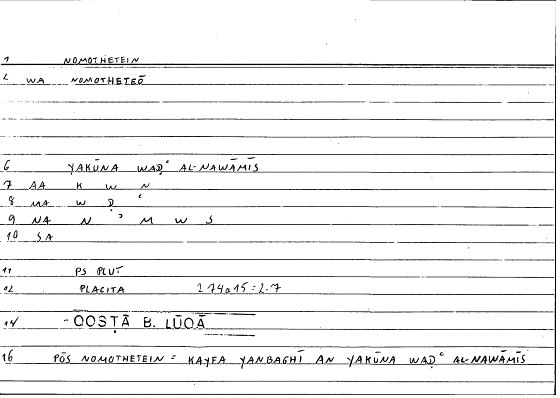 1 NOMOTHETEIN
2 WA NOMOTHETEŌ
6 YAKŪNA WAḌʿ AL-NAWĀMĪS
7 AA K W N
8 MA W Ḍ ʿ
9 NA N ʾ M W S
10 SA
11 PS PLUT
12 PLACITA 274a15=2.7
14 QOSṬĀ B. LŪQĀ
16 PŌS NOMOTHETEIN = KAYFA YANBAGHĪ AN YAKŪNA WAḌʿ AL-NAWĀMĪS